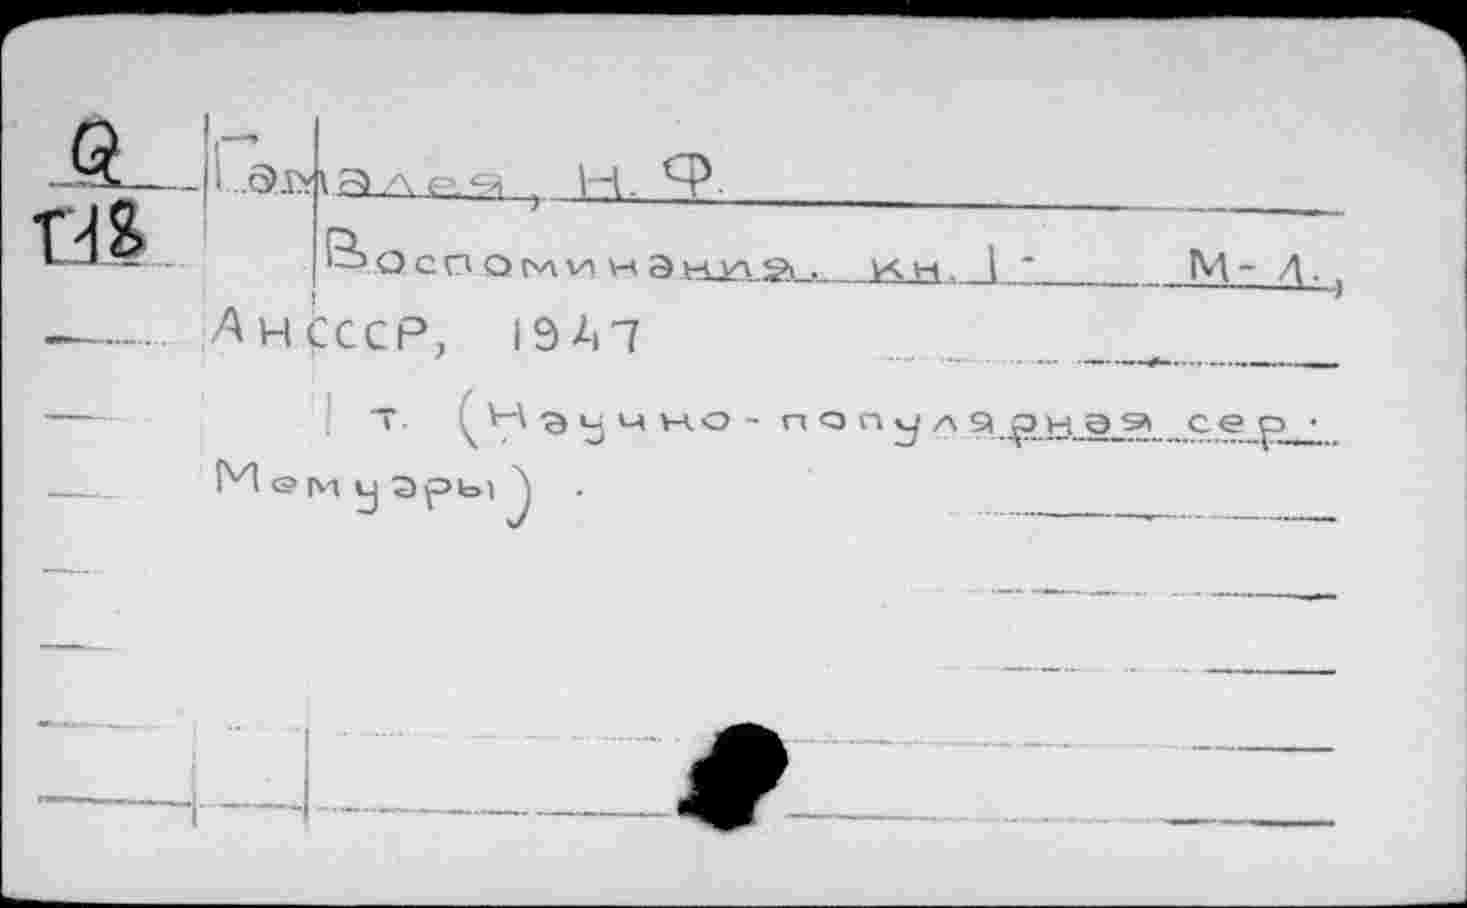 Q Гамалея, Н. Ф.
Г18 Воспоминания. кн. 1 - М-Л.,
АН СССР, 1947
т. (Научно-популярная сер.
Мемуары) .